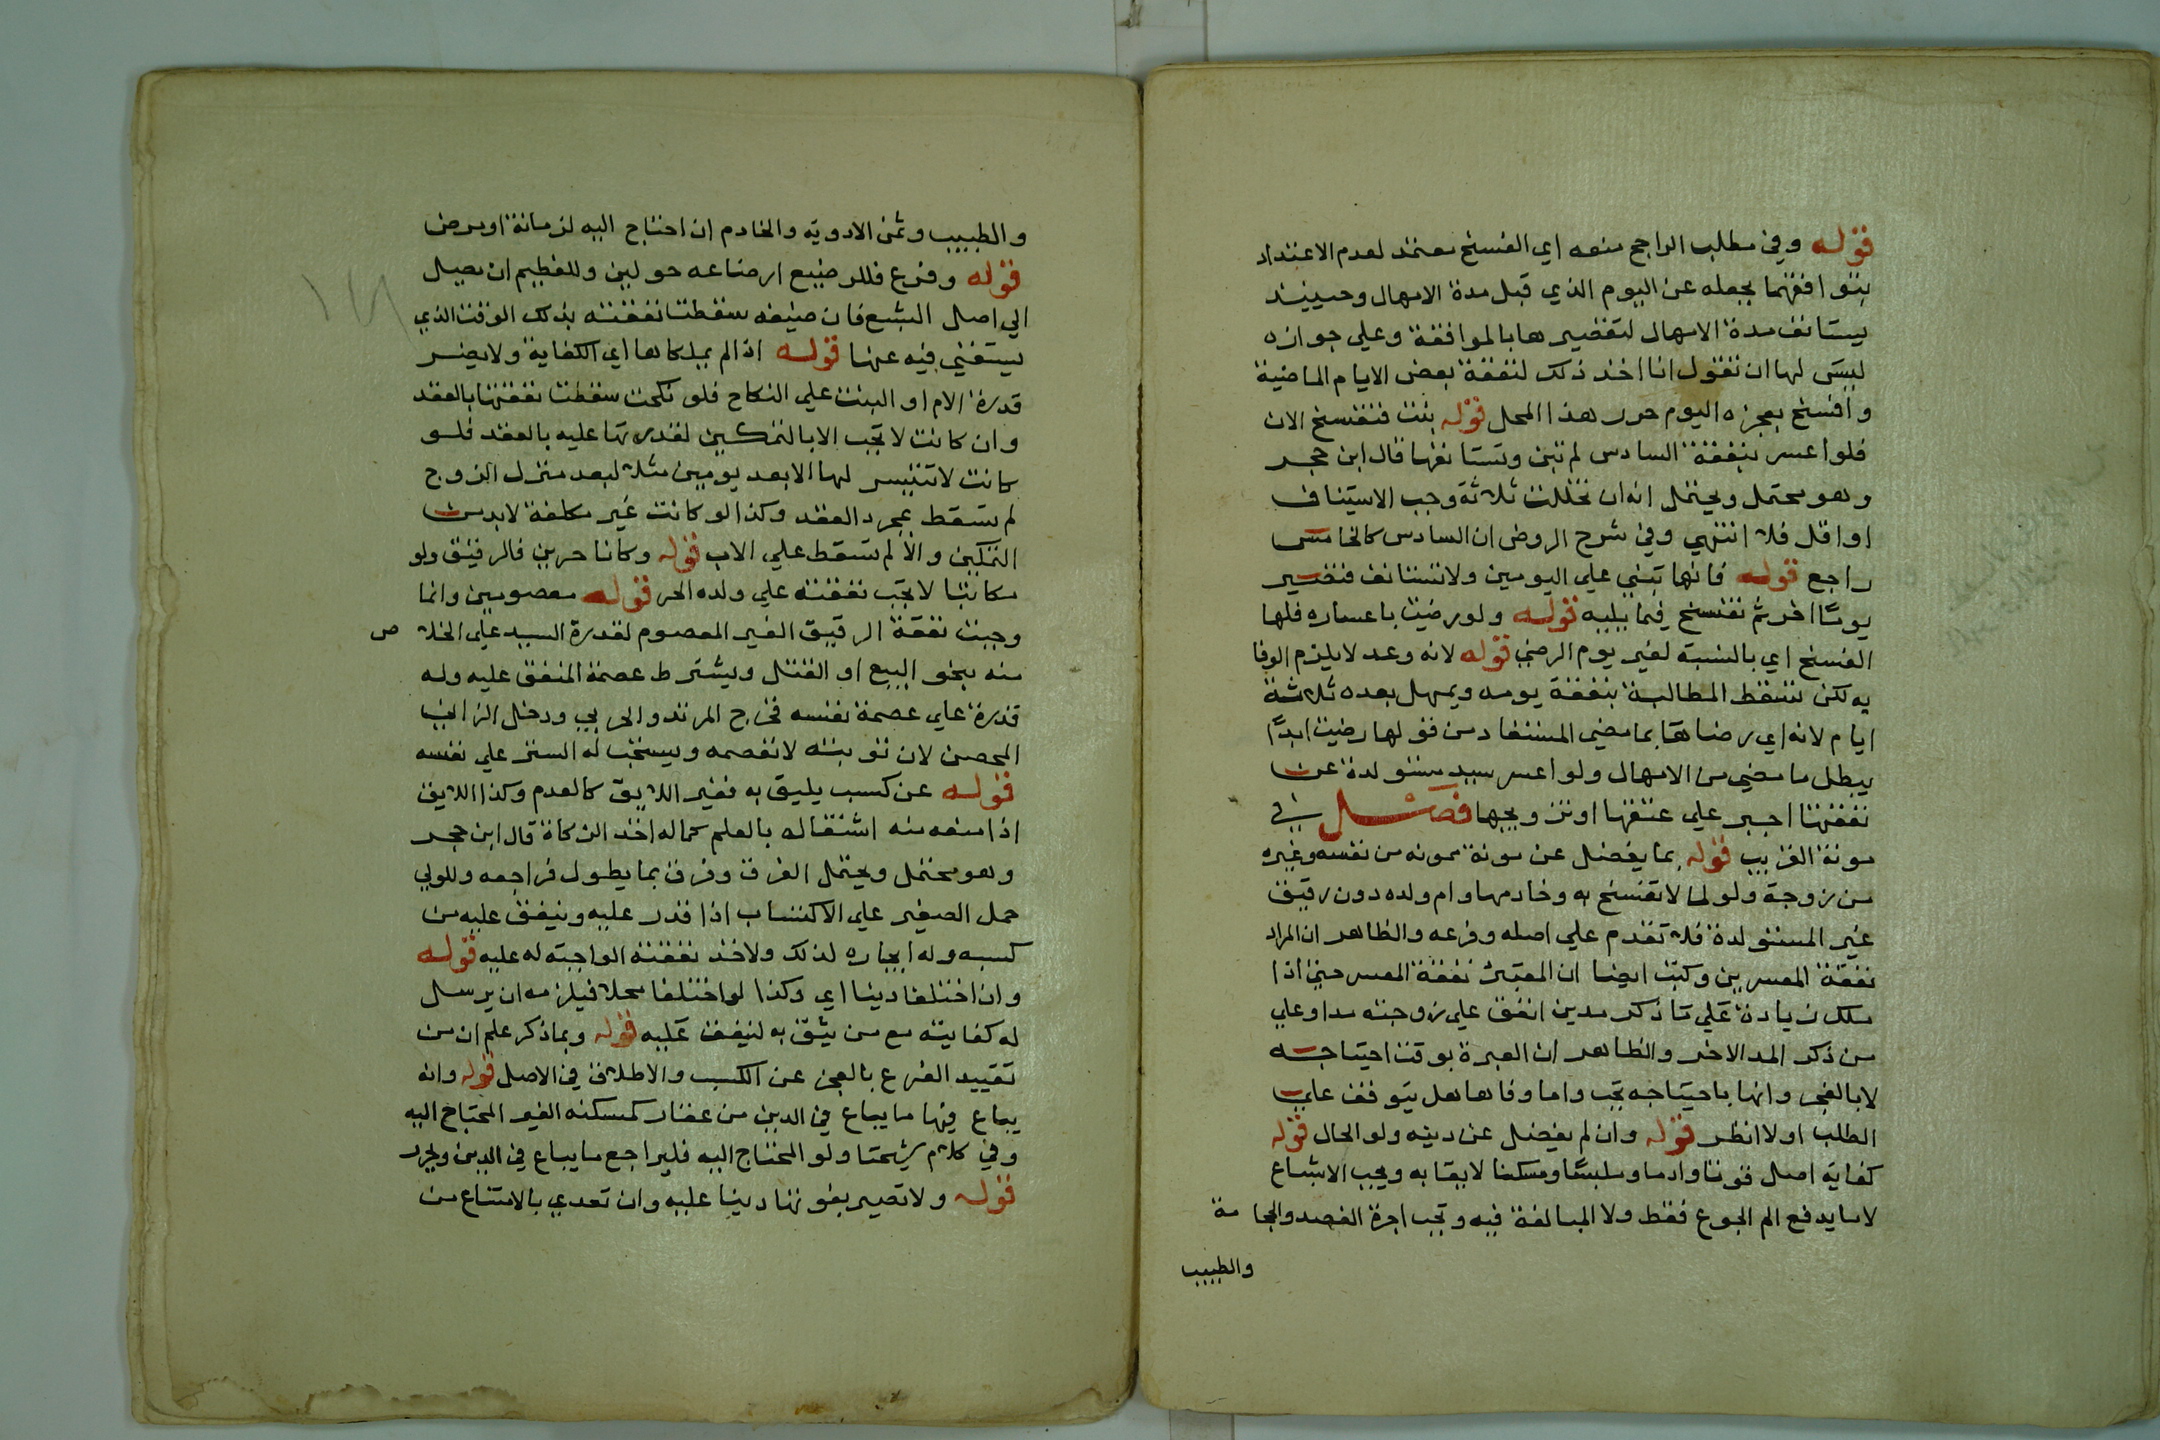 قوله وفي مطلب الراجح منعه اي الفسخ معتمد لعدم الاعتداد
بتوافقهما بجعله عن اليوم الذي قبل مدة الامهال وحينئذ
يستانف مدة الامهال لتقصيرها بالموافقة وعلي جوازه
ليس لها ان تقول انا اخذ ذلك لنفقة بعض الايام الماضية
وافسخ بعجزه اليوم حرر هذا المحل قوله بنت فتفسخ الان
فلو اعسر بنفقة السادس لم تبن وتستانفها قال ابن حجر
وهو محتمل ويحتمل انه ان تخللت ثلاثة وجب الاستيناف
او اقل فلا انتهي وفي شرح الروض ان السادس كالخامس
راجع قوله فانها تبني علي اليومين ولا تستانف فتصير
يومًا اخر ثم تفسخ فيما يليه قوله ولو رضيت باعساره فلها
الفسخ اي بالنسبة لغير يوم الرضي قوله لانه وعد لا يلزم الوفا
به لكن تسقط المطالبة بنفقة يومه ويمهل بعده ثلاثة
ايام لانه اي رضاها بما مضي المستفاد من قولها رضيت ابدًا
يبطل ما مضي من الامهال ولو اعسر سيد مستولدة عن
نفقتها اجبر علي عتقها او تزويجها فصل في
مونة القريب قوله بما يفضل عن مونة ممونه من نفسه وغيره
من زوجة ولو لما لا تفسخ به وخادمها وام ولده دون رقيق
غير المستولدة فلا تقدم علي اصله وفرعه والظاهر ان المراد
نفقة المعسرين وكتب ايضا ان المعتبر نفقة المعسر حتي اذا
ملك زيادة علي ما ذكر مدين انفق علي زوجته مدا وعلي
من ذكر المد الاخر والظاهر ان العبرة بوقت احتياجه
لا بالفجر وانها باحتياجه تجب واما وفاها هل يتوقف علي
الطلب او لا انظر قوله وان لم يفضل عن دينه ولو الحال قوله
كفاية اصل قوتا وادما وملبسًا ومسكنا لايقا به ويجب الاشباع
لا ما يدفع الم الجوع فقط ولا المبالغة فيه وتجب اجرة الفصد والحجامة
والطبيب
والطبيب وثمن الادوية والخادم ان احتاج اليه لزمانة او مرض
قوله وفرع فللرضيع ارضاعه حولين وللفطيم ان يصل
الي اصل الشبع فان ضيفه سقطت نفقته بذلك الوقت الذي
يستغني فيه عنها قوله اذا لم يملكاها اي الكفاية ولا يضر
قدرة الام او البنت علي النكاح فلو نكحت سقطت نفقتها بالعقد
وان كانت لا تجب الا بالتمكين لقدرتها عليه بالعقد فلو
كانت لا تتيسر لها الا بعد يومين مثلا لبعد منزل الزوج
لم تسقط بمجرد العقد وكذا لو كانت غير مكلفة لا بد من
التمكين والا لم تسقط علي الاب قوله وكانا حرين فالرقيق ولو
مكاتبا لا تجب نفقته علي ولده الحر قوله معصومين وانما
وجبت نفقة الرقيق الغير المعصوم لقدرة السيد علي الخلاص
منه بنحو البيع او القتل ويشترط عصمة المنفق عليه وله
قدرة علي عصمة نفسه فخرج المرتد والحربي ودخل الزاني
المحصن لان توبته لا تعصمه ويستحب له الستر علي نفسه
قوله عن كسب يليق به فغير اللايق كالعدم وكذا اللايق
اذا منعه منه اشتغاله بالعلم كما له اخذ الزكاة قال ابن حجر
وهو محتمل ويحتمل الفرق وفرق بما يطول فراجعه وللولي
حمل الصغير علي الاكتساب اذا قدر عليه وينفق عليه من
كسبه وله ايجاره لذلك ولاخذ نفقته الواجبة له عليه قوله
وان اختلفا دينا اي وكذا لو اختلفا محلا فيلزمه ان يرسل
له كفايته مع من يثق به لينفق عليه قوله وبما ذكر علم ان من
تقييد الفرع بالعجز عن الكسب والاطلاق في الاصل قوله وانه
يباع فيها ما يباع في الدين من عقار كمسكنه الغير المحتاج اليه
وفي كلام شيخنا ولو المحتاج اليه فليراجع ما يباع في الدين وليحرر
قوله ولا تصير بفوتها دينا عليه وان تعدي بالامتناع من